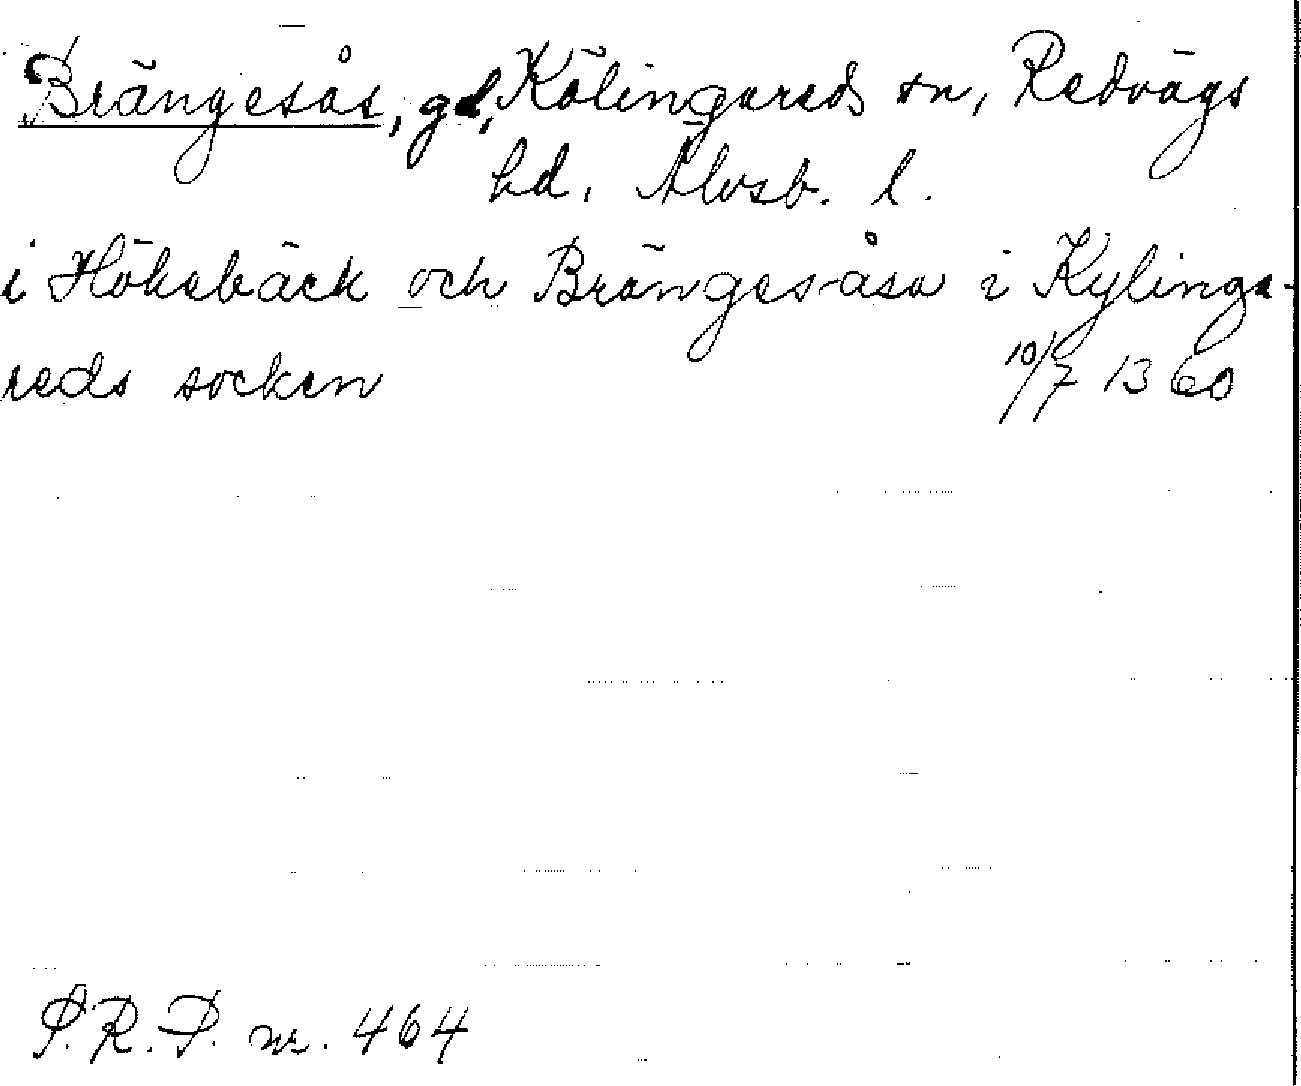 Brängesås, gd, Kölingareds sn, Redvägs
hd. Älvsb. l.
i Höksbäck och Brängesåsa i Kylinga-
reds socken 10/7 1360
S.R.P. nr. 464